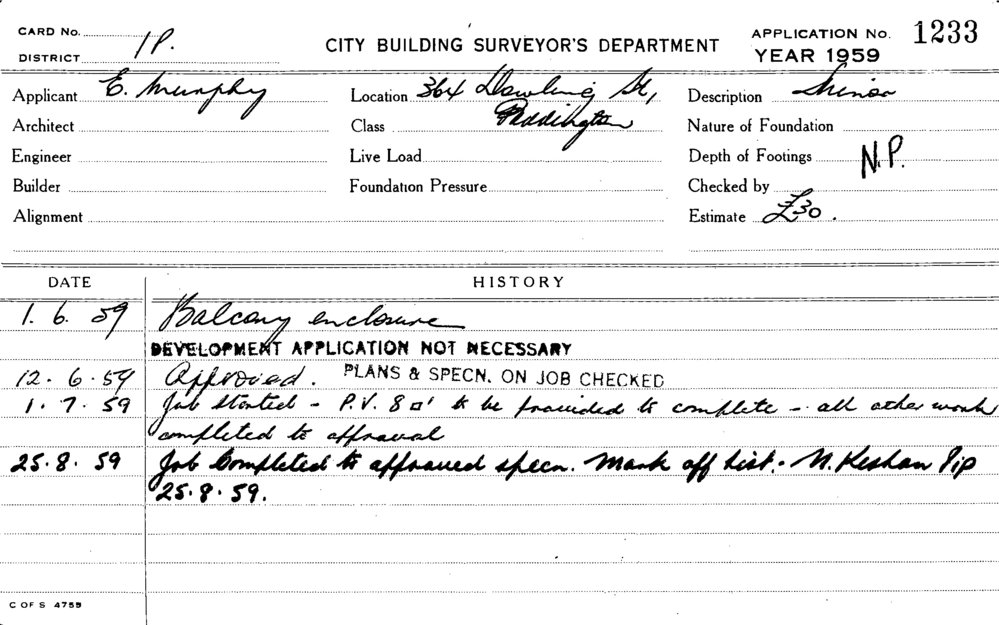 CARD No.
1P.
DISTRICT
CITY BUILDING SURVEYOR'S DEPARTMENT
APPLICATION No. 1233
YEAR 1959
Applicant E. Murphy
Location 364 Dowling St,
Description Minor
Architect
Class Paddington
Nature of Foundation
Engineer
Live Load
Depth of Footings N.P.
Builder
Foundation Pressure
Checked by
Alignment
Estimate £30.
DATE HISTORY
1. 6. 59 Balcony enclosure
DEVELOPMENT APPLICATION NOT NECESSARY
12. 6. 59 Approved. PLANS & SPECN. ON JOB CHECKED
1. 7. 59 Job Started - P.V. 8□' to be provided to complete - all other work
completed to approval
25. 8. 59 Job Completed to approved specn. Mark off list. - N. Keshan
25. 8. 59.
C OF S 4755